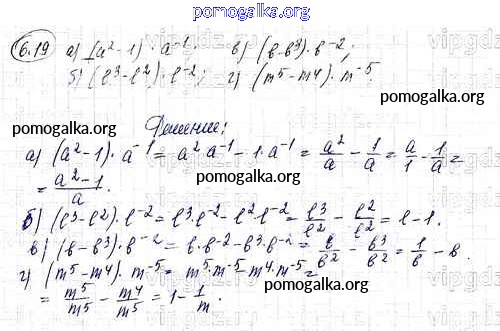 pomogalka.org
6.19 а) (a² - 1) · a⁻¹; в) (в - в³) · в⁻²;
б) (l³ - l²) · l⁻²; г) (m⁵ - m⁴) · m⁻⁵
pomogalka.org pomogalka.org
Решение:
а) (a² - 1) · a⁻¹ = a² · a⁻¹ - 1 · a⁻¹ = a²/a - 1/a = a/1 - 1/a =
= a²-1/a.
pomogalka.org pomogalka.org
б) (l³ - l²) · l⁻² = l³ · l⁻² - l² l⁻² = l³/l² - l²/l² = l - 1.
в) (в - в³) · в⁻² = в · в⁻² - в³ · в⁻² = в/в² - в³/в² = 1/в - в.
г) (m⁵ - m⁴) · m⁻⁵ = m⁵ · m⁻⁵ - m⁴ · m⁻⁵ =
= m⁵/m⁵ - m⁴/m⁵ = 1 - 1/m.
pomogalka.org